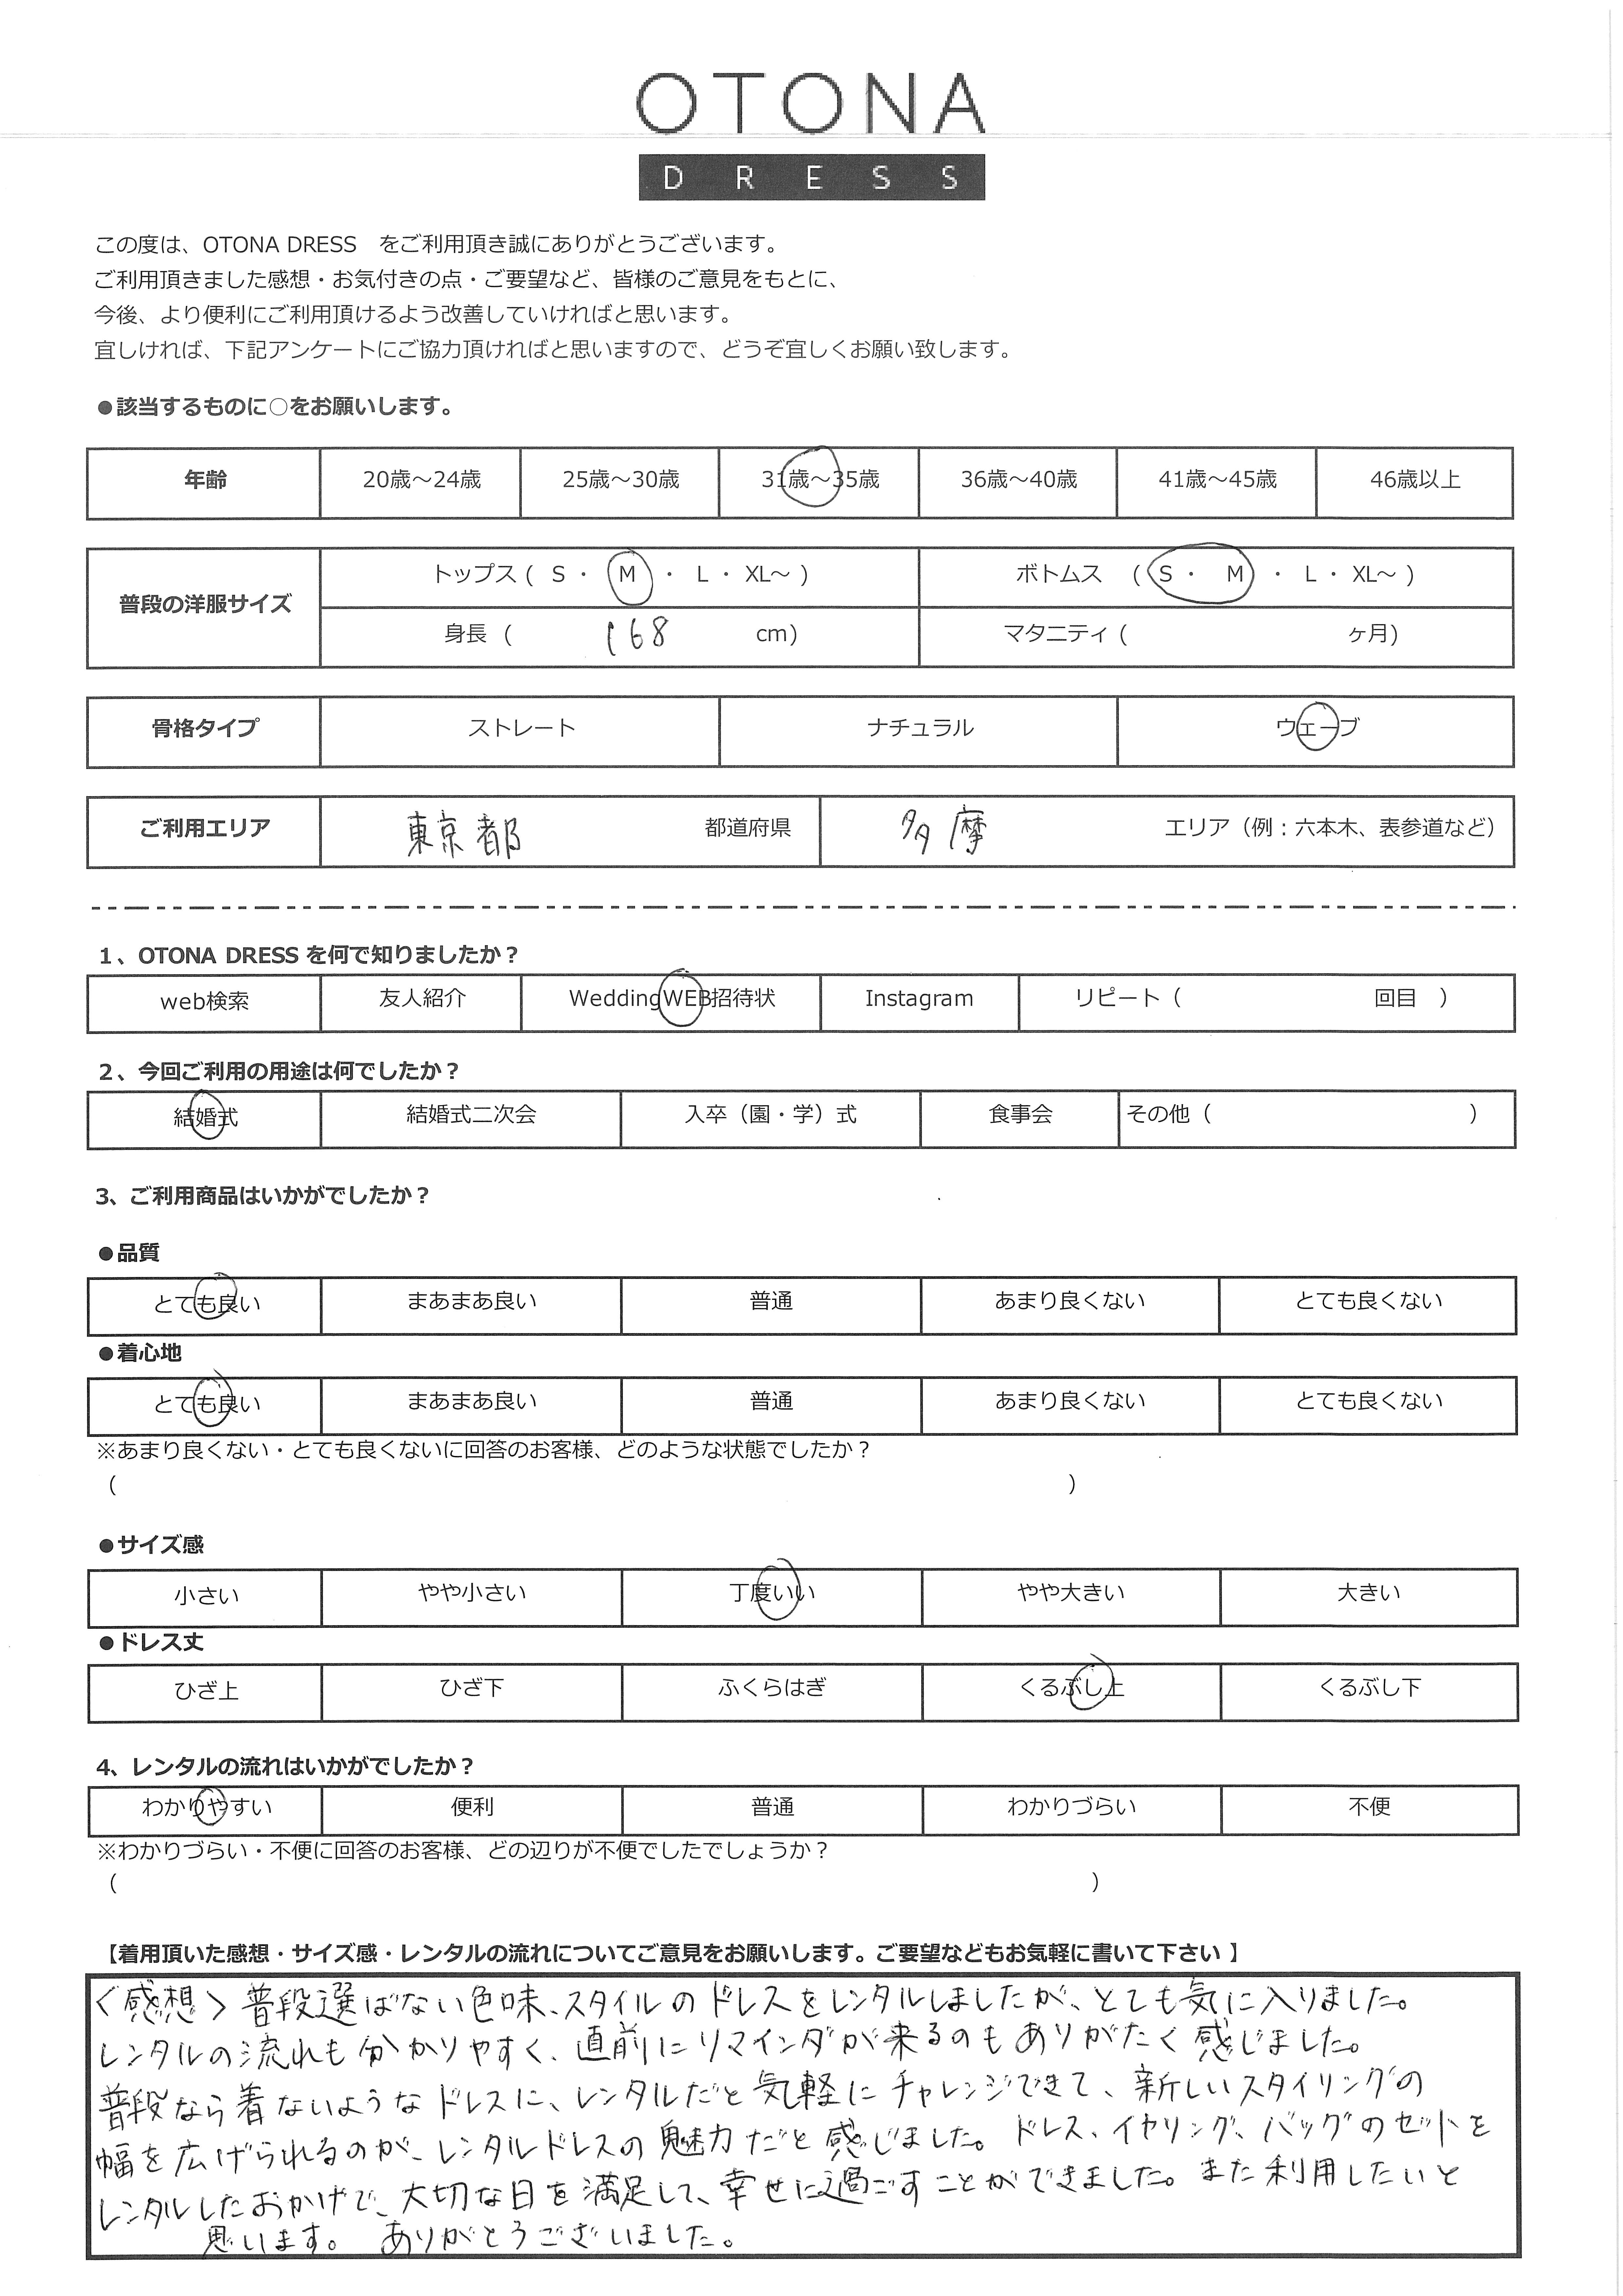 OTONA
DRESS
この度は、OTONA DRESS　をご利用頂き誠にありがとうございます。
ご利用頂きました感想・お気付きの点・ご要望など、皆様のご意見をもとに、
今後、より便利にご利用頂けるよう改善していければと思います。
宜しければ、下記アンケートにご協力頂ければと思いますので、どうぞ宜しくお願い致します。
●該当するものに○をお願いします。
年齢 20歳～24歳 25歳～30歳 31歳～35歳 36歳～40歳 41歳～45歳 46歳以上
普段の洋服サイズ トップス ( S ・ M ・ L ・ XL～ ) ボトムス ( S ・ M ・ L ・ XL～ )
身長 ( 168 cm) マタニティ ( ヶ月)
骨格タイプ ストレート ナチュラル ウェーブ
ご利用エリア 東京都 都道府県 多摩 エリア（例：六本木、表参道など）
1、OTONA DRESS を何で知りましたか？
web検索 友人紹介 WeddingWEB招待状 Instagram リピート（ 回目 ）
2、今回ご利用の用途は何でしたか？
結婚式 結婚式二次会 入卒（園・学）式 食事会 その他（ ）
3、ご利用商品はいかがでしたか？
●品質
とても良い まあまあ良い 普通 あまり良くない とても良くない
●着心地
とても良い まあまあ良い 普通 あまり良くない とても良くない
※あまり良くない・とても良くないに回答のお客様、どのような状態でしたか？
( )
●サイズ感
小さい やや小さい 丁度いい やや大きい 大きい
●ドレス丈
ひざ上 ひざ下 ふくらはぎ くるぶし上 くるぶし下
4、レンタルの流れはいかがでしたか？
わかりやすい 便利 普通 わかりづらい 不便
※わかりづらい・不便に回答のお客様、どの辺りが不便でしたでしょうか？
( )
【着用頂いた感想・サイズ感・レンタルの流れについてご意見をお願いします。ご要望などもお気軽に書いて下さい 】
＜感想＞ 普段選ばない色味、スタイルのドレスをレンタルしましたが、とても気に入りました。
レンタルの流れも分かりやすく、直前にリマインダが来るのもありがたく感じました。
普段なら着ないようなドレスに、レンタルだと気軽にチャレンジできて、新しいスタイリングの
幅を広げられるのが、レンタルドレスの魅力だと感じました。ドレス、イヤリング、バッグのセットを
レンタルしたおかげで、大切な日を満足して、幸せに過ごすことができました。また利用したいと
思います。　ありがとうございました。